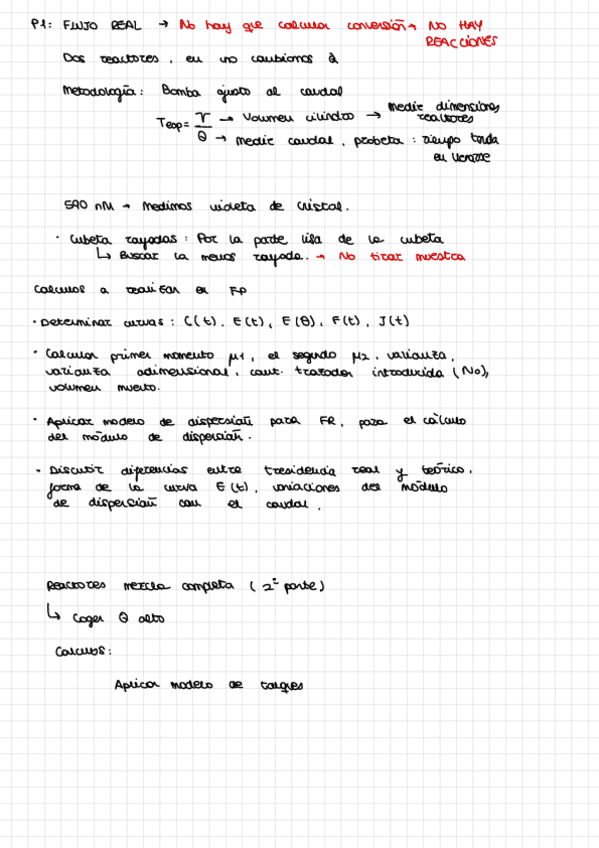 P1: FLUJO REAL → No hay que calcular conversión → NO HAY
REACCIONES
Dos reactores, en uno cambiamos Q
Metodología: Bomba ajusto al caudal
Teop = V → Volumen cilindro → Medir dimensiones reactores
Q → Medir caudal, probeta: tiempo tarda
en llenarse
590 nM → Medimos violeta de cristal.
· Cubeta rayadas: Por la parte lisa de la cubeta
↳ Buscar la menos rayada. → No tirar muestra
Calculos a realizar en FP
· Determinar curvas: C(t), E(t), E(θ), F(t), J(t)
· Calcular primer momento μ1, el segundo μ2, varianza,
varianza adimensional, cant. trazador introducida (No),
volumen muerto.
· Aplicar modelo de dispersión para FR, para el cálculo
del módulo de dispersión.
· Discutir diferencias entre tresidencia real y teórico,
forma de la curva E(t), variaciones del módulo
de dispersión con el caudal.
Reactores mezcla completa (2ª parte)
↳ Coger Q alto
Calculos:
Aplicar modelo de tanques